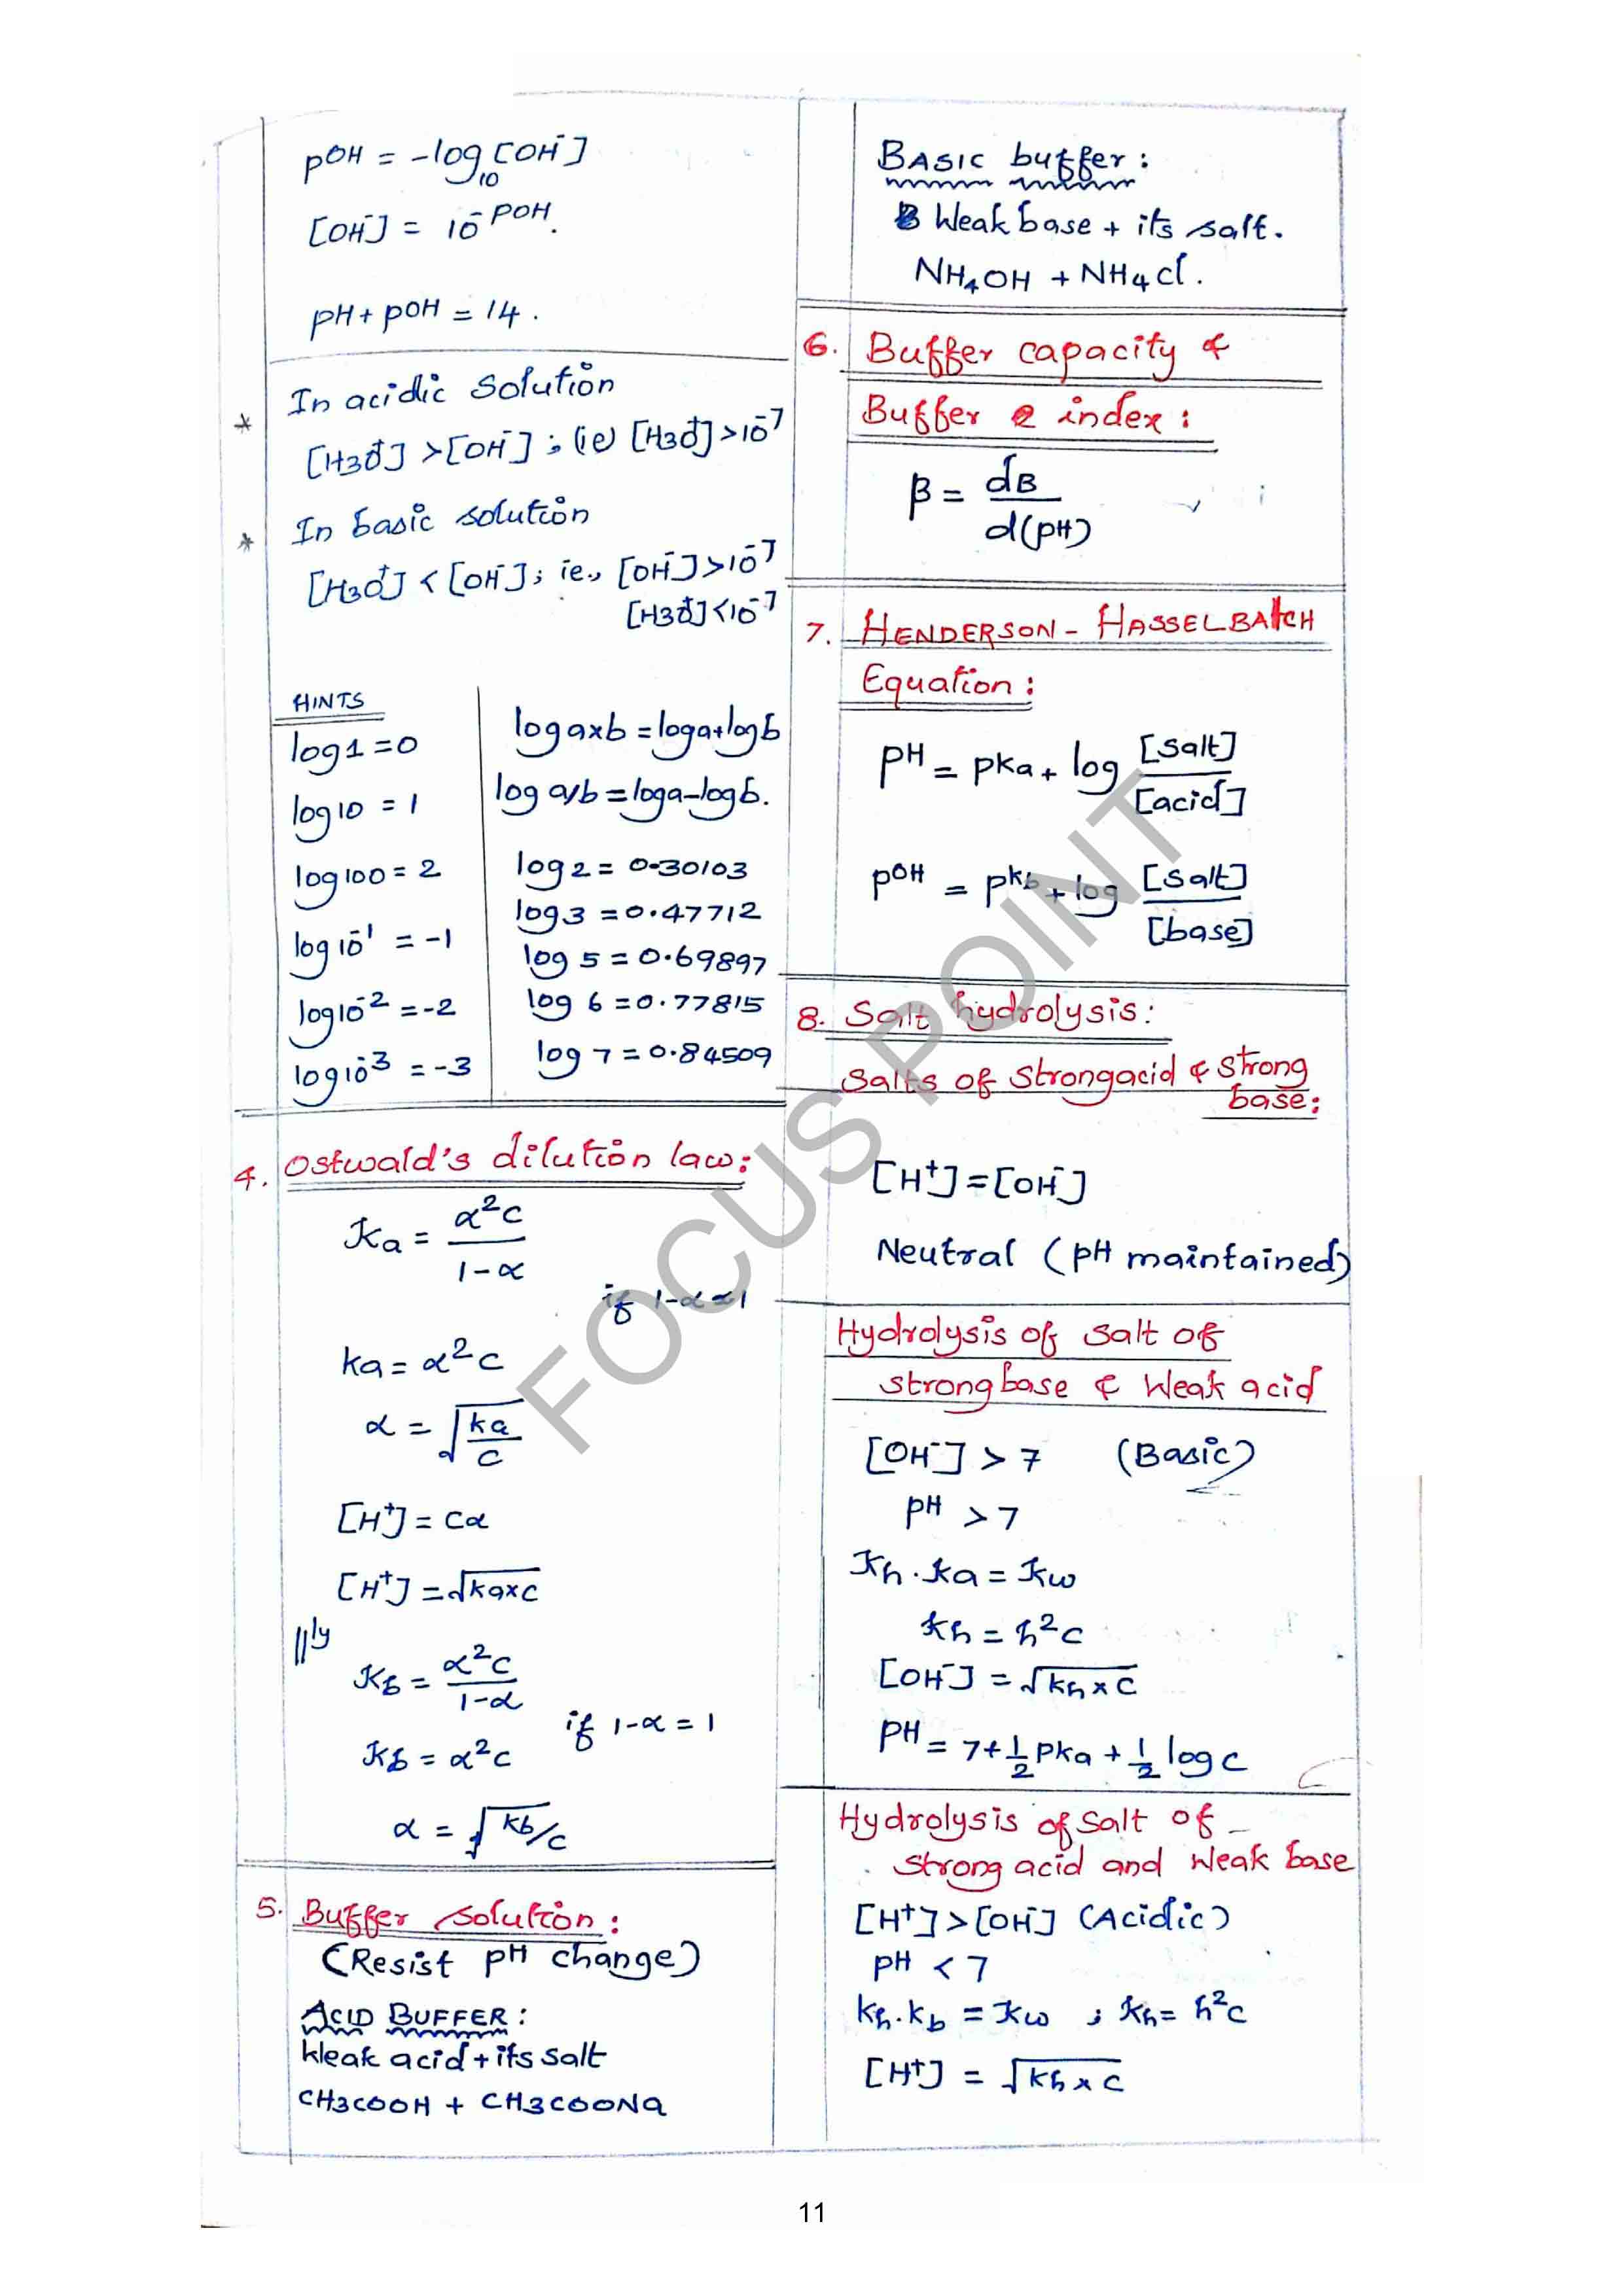 pOH = -log₁₀[OH⁻]
[OH⁻] = 10^-POH.
pH + pOH = 14.
* In acidic solution
[H3O⁺] > [OH⁻] ; (ie) [H3O⁺] > 10⁻⁷
* In basic solution
[H3O⁺] < [OH⁻] ; ie., [OH⁻] > 10⁻⁷
[H3O⁺] < 10⁻⁷
HINTS
log 1 = 0
log 10 = 1
log 100 = 2
log 10⁻¹ = -1
log 10⁻² = -2
log 10⁻³ = -3
log a×b = log a + log b
log a/b = log a - log b.
log 2 = 0.30103
log 3 = 0.47712
log 5 = 0.69897
log 6 = 0.77815
log 7 = 0.84509
4. Ostwald's dilution law:
Ka = α²c / 1-α
if 1-α ≈ 1
ka = α²c
α = √(ka/c)
[H⁺] = cα
[H⁺] = √(ka×c)
||ly
Kb = α²c / 1-α
if 1-α = 1
Kb = α²c
α = √(kb/c)
5. Buffer solution:
(Resist pH change)
ACID BUFFER:
Weak acid + its salt
CH3COOH + CH3COONa
BASIC buffer:
Weak base + its salt.
NH₄OH + NH4Cl.
6. Buffer capacity &
Buffer index:
β = dB / d(pH)
7. HENDERSON - HASSELBATCH
Equation:
PH = pka + log [salt] / [acid]
pOH = pkb + log [salt] / [base]
8. Salt hydrolysis:
Salts of strong acid & strong
base:
[H⁺] = [OH⁻]
Neutral (pH maintained)
Hydrolysis of salt of
strong base & Weak acid
[OH⁻] > 7 (Basic)
pH > 7
Kh . Ka = Kw
Kh = h²c
[OH⁻] = √(Kh × c)
PH = 7 + ½ pka + ½ log c
Hydrolysis of salt of
strong acid and Weak base
[H⁺] > [OH⁻] (Acidic)
pH < 7
Kh . Kb = Kw ; Kh = h²c
[H⁺] = √(Kh × c)
FOCUS POINT
11